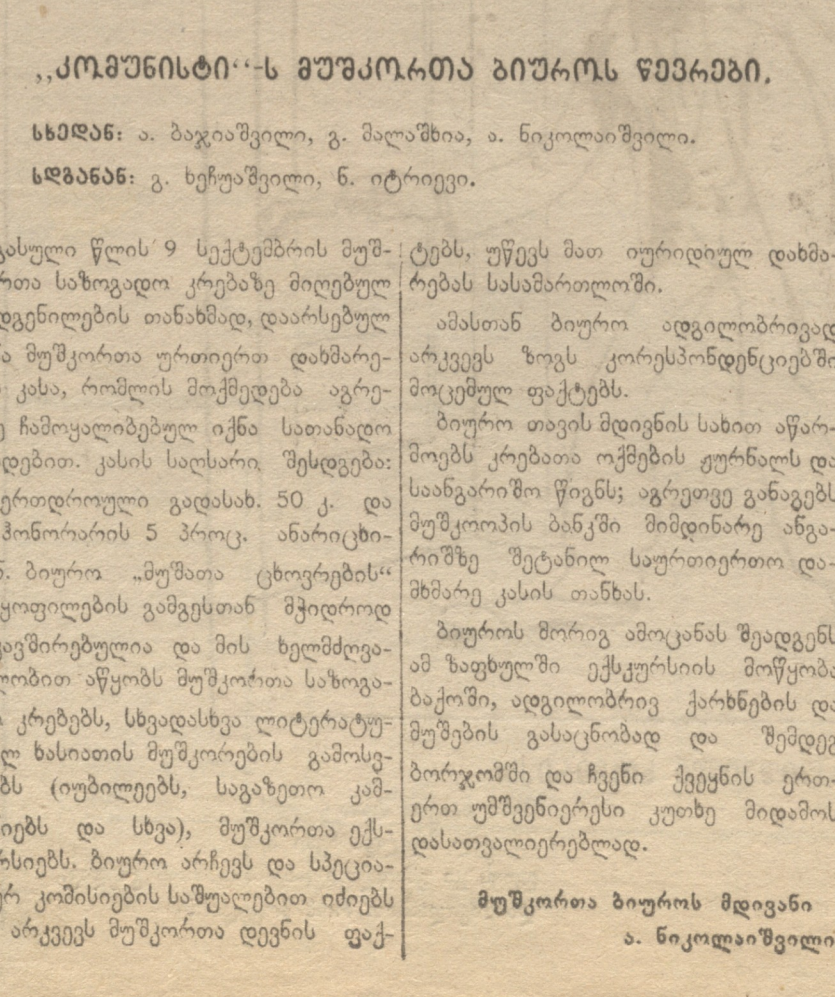 „კომუნისტი“-ს მუშკორთა ბიუროს წევრები.
სხედან: ა. ბაჯიაშვილი, გ. მალაშხია, ა. ნიკოლაიშვილი.
სდგანან: გ. ხეჩუაშვილი, ნ. იტრიევი.
გასული წლის 9 სექტემბრის მუშ-
რთა საზოგადო კრებაზე მიღებულ
დგენილების თანახმად, დაარსებულ
ა მუშკორთა ურთიერთ დახმარე-
კასა, რომლის მოქმედება აგრე-
ე ჩამოყალიბებულ იქნა სათანადო
დებით. კასის საღსარი შესდგება:
ერთდროული გადასახ. 50 კ. და
ჰონორარის 5 პროც. ანარიცხი-
ნ. ბიურო „მუშათა ცხოვრების“
ყოფილების გამგესთან მჭიდროდ
კავშირებულია და მის ხელმძღვა-
ლობით აწყობს მუშკორთა საზოგა-
კრებებს, სხვადასხვა ლიტერატუ-
ლ ხასიათის მუშკორების გამოსვ-
ბს (იუბილეებს, საგაზეთო კამ-
იებს და სხვა), მუშკორთა ექს-
რსიებს. ბიურო არჩევს და სპეცია-
ურ კომისიების საშუალებით იძიებს
არკვევს მუშკორთა დევნის ფაქ-
ტებს, უწევს მათ იურიდიულ დახმა-
რებას სასამართლოში.
ამასთან ბიურო ადგილობრივად
არკვევს ზოგს კორესპონდენციებში
მოცემულ ფაქტებს.
ბიურო თავის მდივნის სახით აწარ-
მოებს კრებათა ოქმების ჟურნალს და
საანგარიშო წიგნს; აგრეთვე განაგებს
მუშკოოპის ბანკში მიმდინარე ანგა-
რიშზე შეტანილ საურთიერთო და-
მხმარე კასის თანხას.
ბიუროს მორიგ ამოცანას შეადგენს
ამ ზაფხულში ექსკურსიის მოწყობა
ბაქოში, ადგილობრივ ქარხნების და
მუშების გასაცნობად და შემდეგ
ბორჯომში და ჩვენი ქვეყნის ერთ-
ერთ უმშვენიერესი კუთხე მიდამოს
დასათვალიერებლად.
მუშკორთა ბიუროს მდივანი
ა. ნიკოლაიშვილი